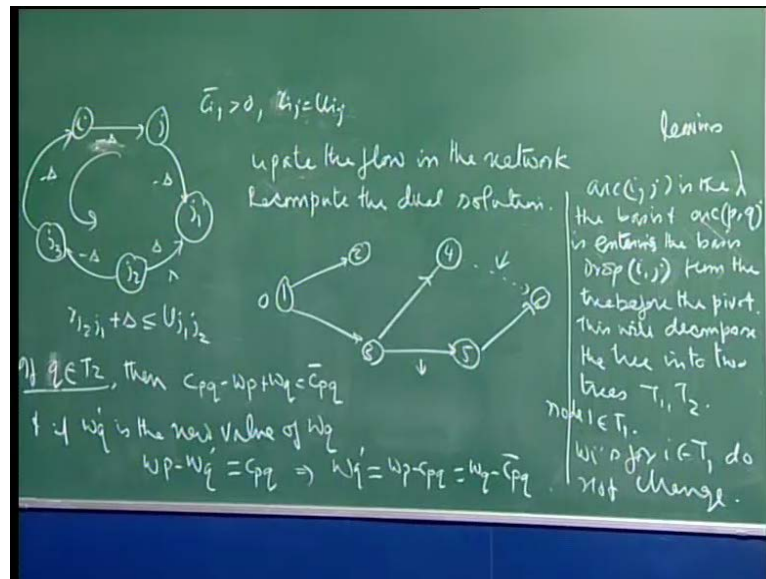 C̄ij > 0, xij = Uij
i
j
-Δ
-Δ
-Δ
j1
j3
-Δ
Δ
j2
upate the flow in the network
Recompute the dual solution.
0
1
2
3
4
5
xj2j1 + Δ ≤ Uj1j2
If q ∈ T2, then Cpq - wp + wq = C̄pq
& if wq' is the new value of wq
wp - wq' = Cpq ⇒ wq' = wp - cpq = wq - C̄pq
leaving
arc(i,j) is the
the basis & arc(p,q)
is entering the basis
Drop (i,j) from the
tree before the pivot.
This will decompose
the tree into two
trees T1, T2.
node 1 ∈ T1.
wi's for i ∈ T1 do
not change.